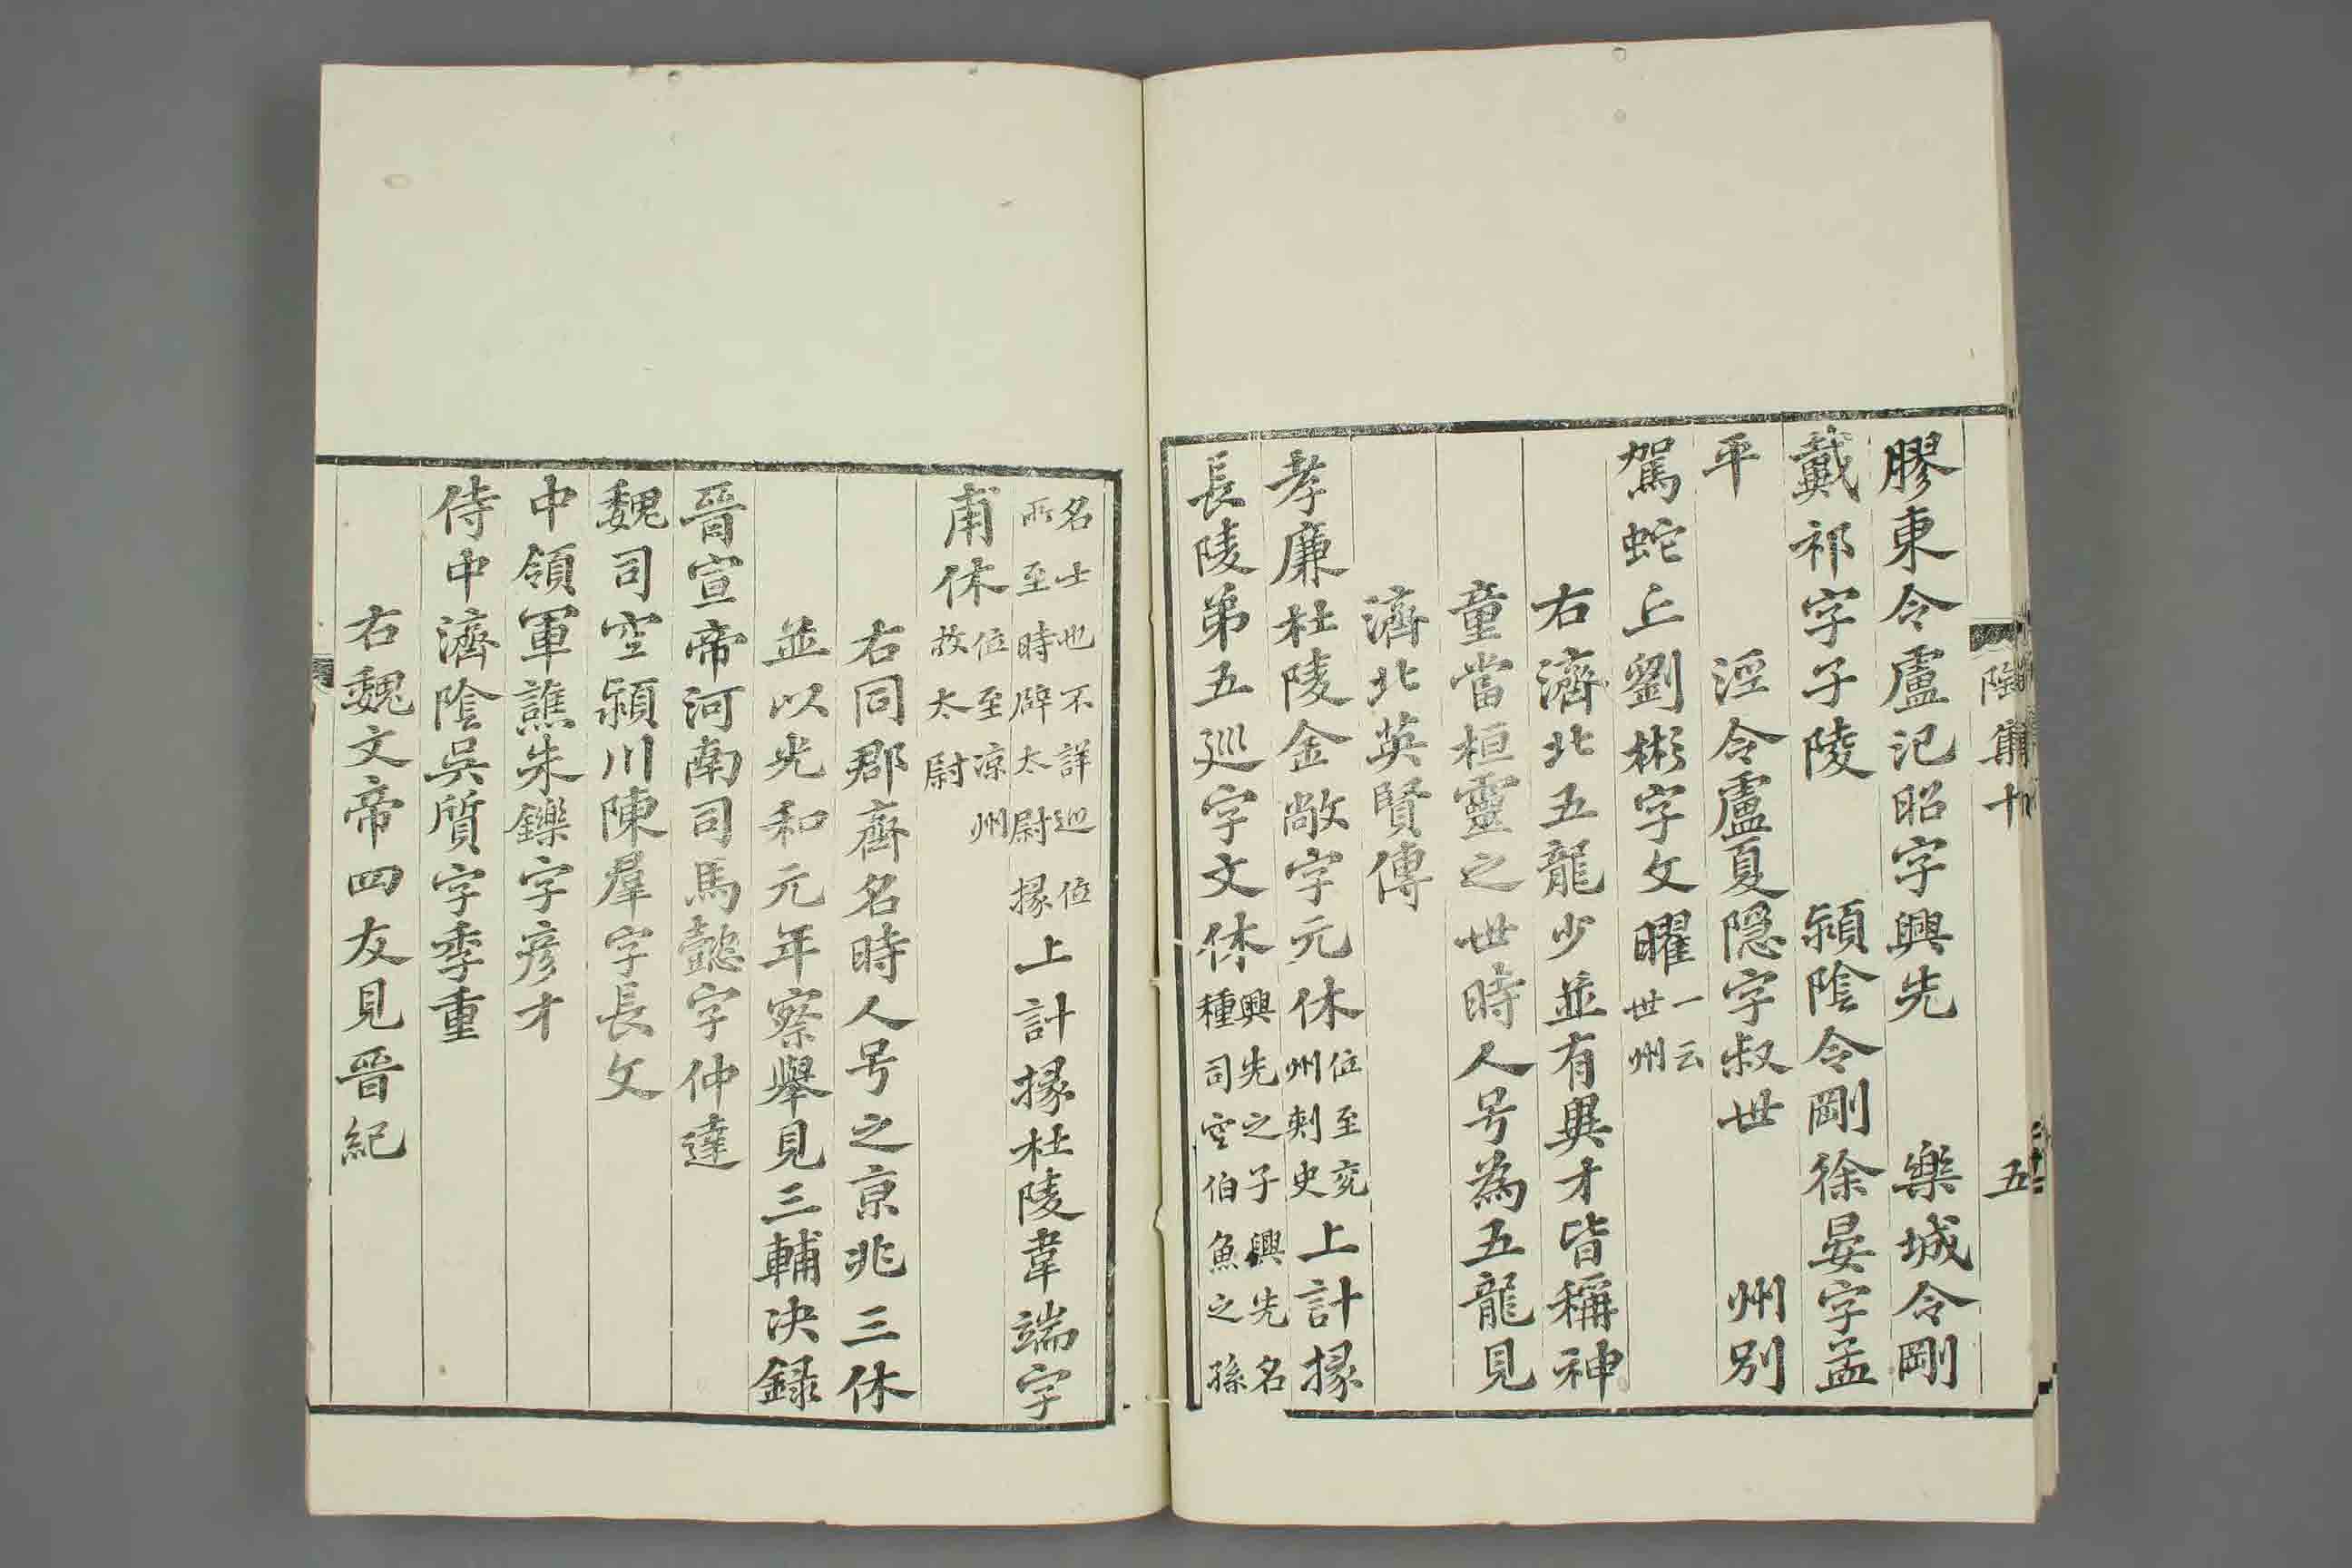 陶集十
五
膠東令盧汜昭字興先　樂城令剛
戴祁字子陵　潁陰令剛徐晏字孟
平　涇令盧夏隠字叔世　州別
駕蛇丘劉彬字文曜一云世州
右濟北五龍少並有異才皆稱神
童當桓靈之世時人号為五龍見
濟北英賢傳
孝廉杜陵金敞字元休位至兖州刺史上計掾
長陵弟五巡字文休興先之子興先名種司空伯魚之孫
名士也不詳巡位所至時辟太尉掾上計掾杜陵韋端字
甫休位至涼州牧太尉
右同郡齊名時人号之京兆三休
並以光和元年察舉見三輔决録
晉宣帝河南司馬懿字仲達
魏司空潁川陳羣字長文
中領軍譙朱鑠字彦才
侍中濟陰吳質字季重
右魏文帝四友見晉紀